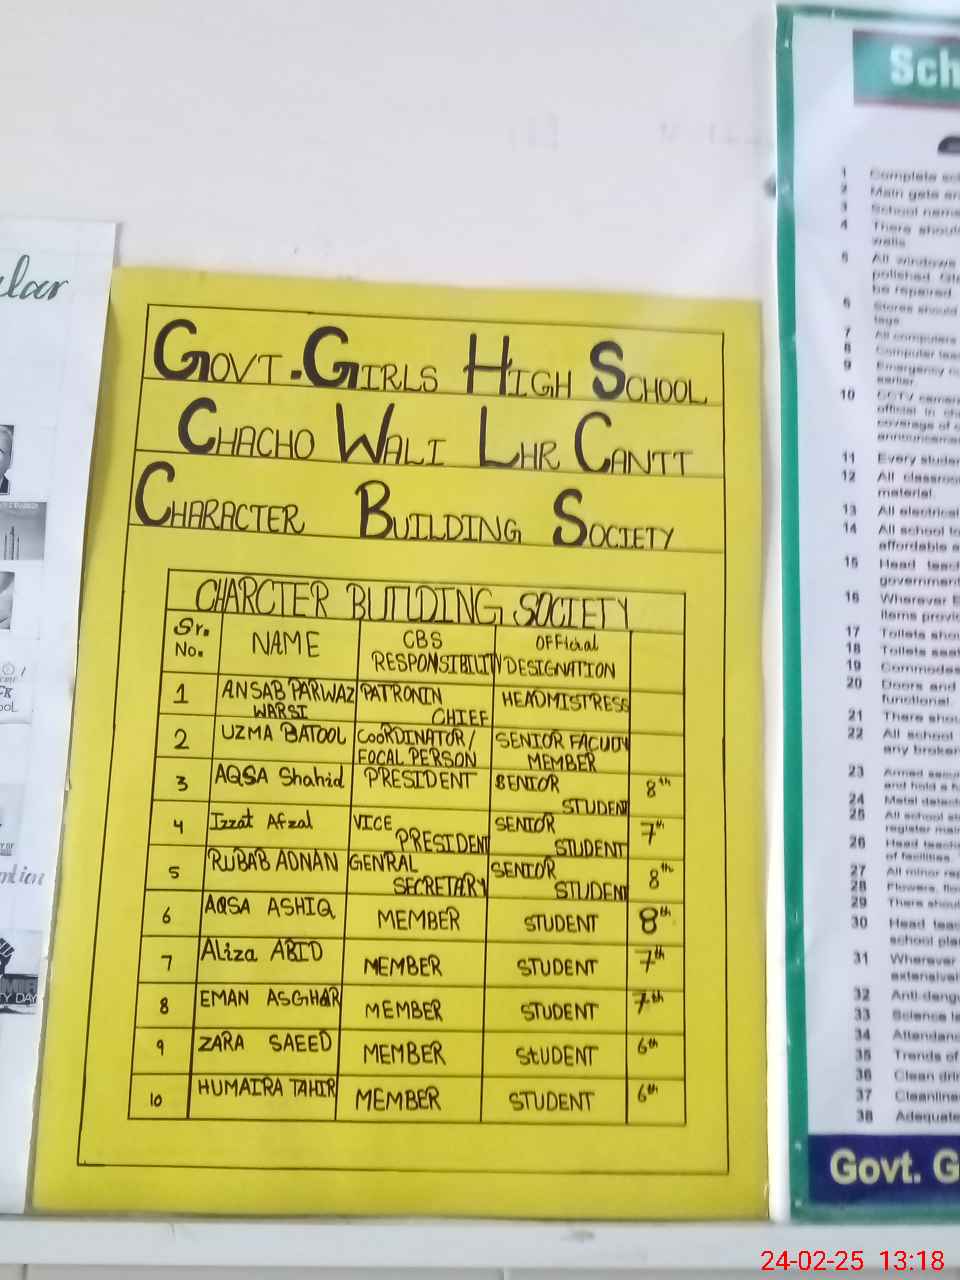 GOVT. GIRLS HIGH SCHOOL
CHACHO WALI LHR CANTT
CHARACTER BUILDING SOCIETY
CHARCTER BUILDING SOCIETY
Sr. No. NAME CBS RESPONSIBILITY OFFicial DESIGNATION
1 ANSAB PARWAZ WARSI PATRONIN CHIEF HEADMISTRESS
2 UZMA BATOOL COORDINATOR/ FOCAL PERSON SENIOR FACULTY MEMBER
3 AQSA Shahid PRESIDENT SENIOR STUDENT 8th
4 Izzat Afzal VICE PRESIDENT SENIOR STUDENT 7th
5 RUBAB ADNAN GENRAL SECRETARY SENIOR STUDENT 8th
6 AQSA ASHIQ MEMBER STUDENT 8th
7 Aliza ABID MEMBER STUDENT 7th
8 EMAN ASGHAR MEMBER STUDENT 7th
9 ZARA SAEED MEMBER STUDENT 6th
10 HUMAIRA TAHIR MEMBER STUDENT 6th
Sch
1 Complete
2 Main gate
3 School name
4 There should
walls
5 All windows
polished.
be repaired.
6 Stores should
tags
7 All computers
8 Computer
9 Emergency
earlier
10 CCTV
official in
coverage of
11 Every
12 All
material.
13 All electrical
14 All school
affordable
15 Head
government
16 Wherever
items
17 Toilets
18 Toilets
19
20 Doors and
functional.
21 There
22 All school
any
23 Armed
and hold a
24 Metal
25 All school
register
26 Head
of facilities.
27 All minor
28 Flowers,
29 There
30 Head
school
31 Wherever
32
33 Science
34
35 Trends of
36 Clean
37
38 Adequate
Govt. G
24-02-25 13:18